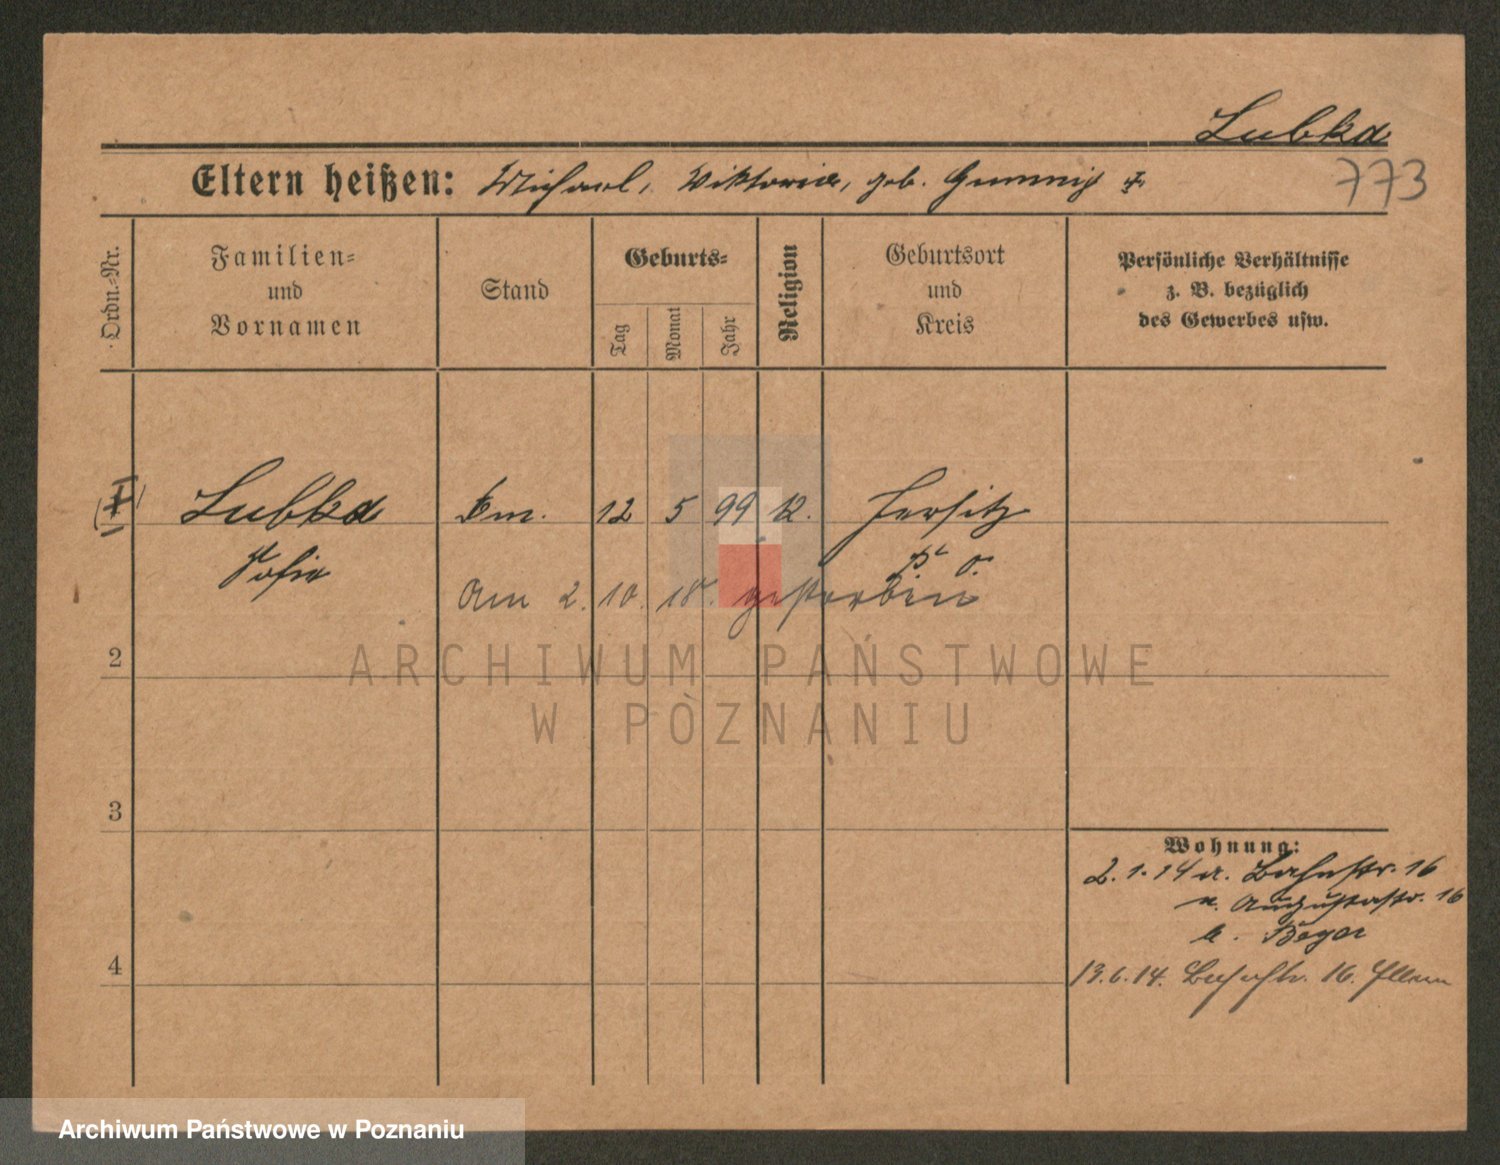 Lubka
773
Eltern heißen: Michael, Viktoria, geb.
Ordn.-Nr.
Familien-
und
Vornamen
Stand
Geburts-
Tag
Monat
Jahr
Religion
Geburtsort
und
Kreis
Persönliche Verhältnisse
z. B. bezüglich
des Gewerbes usw.
Lubka 12 5 99 k. Jersitz
Sofie P. O.
Am 2. 10. 18. gestorben
ARCHIWUM PAŃSTWOWE
W POZNANIU
2
3
4
Wohnung:
2.1.14 a. Bahnstr. 16
n. Augustastr. 16
b. Beyer
13.6.14. Bahnstr. 16. Eltern
Archiwum Państwowe w Poznaniu